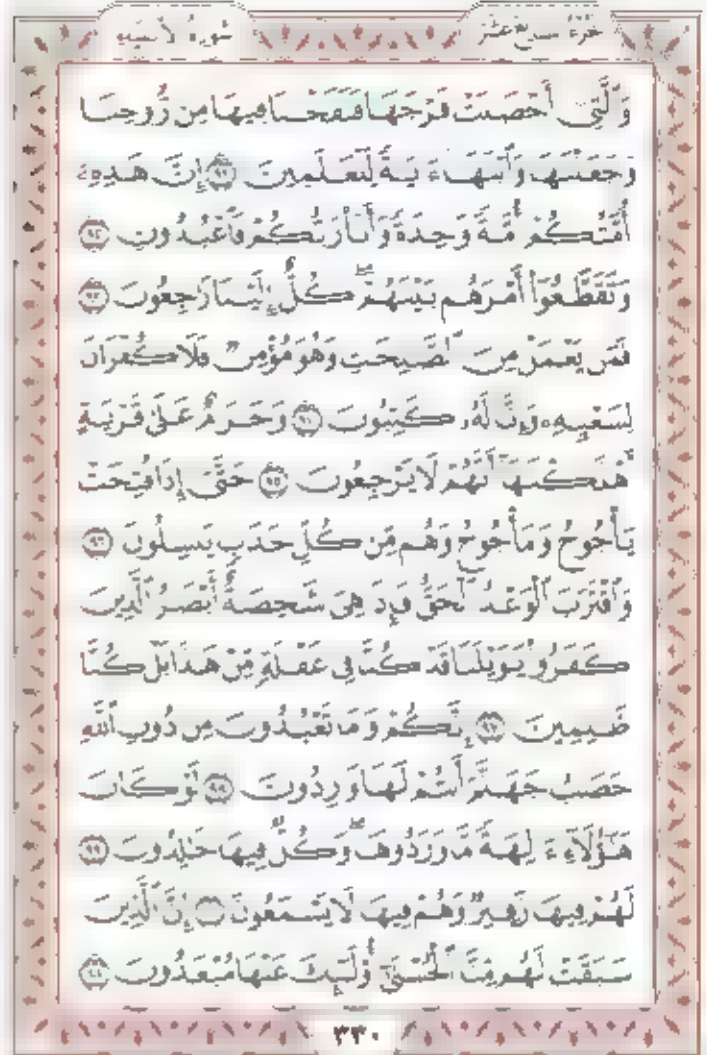 سُورَةُ الأَنبِيَاء الجُزْءُ السَّابِعَ عَشَرَ
وَٱلَّتِىٓ أَحْصَنَتْ فَرْجَهَا فَنَفَخْنَا فِيهَا مِن رُّوحِنَا
وَجَعَلْنَٰهَا وَٱبْنَهَآ ءَايَةً لِّلْعَٰلَمِينَ ٩١ إِنَّ هَٰذِهِۦٓ
أُمَّتُكُمْ أُمَّةً وَٰحِدَةً وَأَنَا۠ رَبُّكُمْ فَٱعْبُدُونِ ٩٢
وَتَقَطَّعُوٓا۟ أَمْرَهُم بَيْنَهُمْ ۖ كُلٌّ إِلَيْنَا رَٰجِعُونَ ٩٣
فَمَن يَعْمَلْ مِنَ ٱلصَّٰلِحَٰتِ وَهُوَ مُؤْمِنٌ فَلَا كُفْرَانَ
لِسَعْيِهِۦ وَإِنَّا لَهُۥ كَٰتِبُونَ ٩٤ وَحَرَٰمٌ عَلَىٰ قَرْيَةٍ
أَهْلَكْنَٰهَآ أَنَّهُمْ لَا يَرْجِعُونَ ٩٥ حَتَّىٰٓ إِذَا فُتِحَتْ
يَأْجُوجُ وَمَأْجُوجُ وَهُم مِّن كُلِّ حَدَبٍ يَنسِلُونَ ٩٦
وَٱقْتَرَبَ ٱلْوَعْدُ ٱلْحَقُّ فَإِذَا هِىَ شَٰخِصَةٌ أَبْصَٰرُ ٱلَّذِينَ
كَفَرُوا۟ يَٰوَيْلَنَا قَدْ كُنَّا فِى غَفْلَةٍ مِّنْ هَٰذَا بَلْ كُنَّا
ظَٰلِمِينَ ٩٧ إِنَّكُمْ وَمَا تَعْبُدُونَ مِن دُونِ ٱللَّهِ
حَصَبُ جَهَنَّمَ أَنتُمْ لَهَا وَٰرِدُونَ ٩٨ لَوْ كَانَ
هَٰٓؤُلَآءِ ءَالِهَةً مَّا وَرَدُوهَا ۖ وَكُلٌّ فِيهَا خَٰلِدُونَ ٩٩
لَهُمْ فِيهَا زَفِيرٌ وَهُمْ فِيهَا لَا يَسْمَعُونَ ١٠٠ إِنَّ ٱلَّذِينَ
سَبَقَتْ لَهُم مِّنَّا ٱلْحُسْنَىٰٓ أُو۟لَٰٓئِكَ عَنْهَا مُبْعَدُونَ ١٠١
٣٣٠